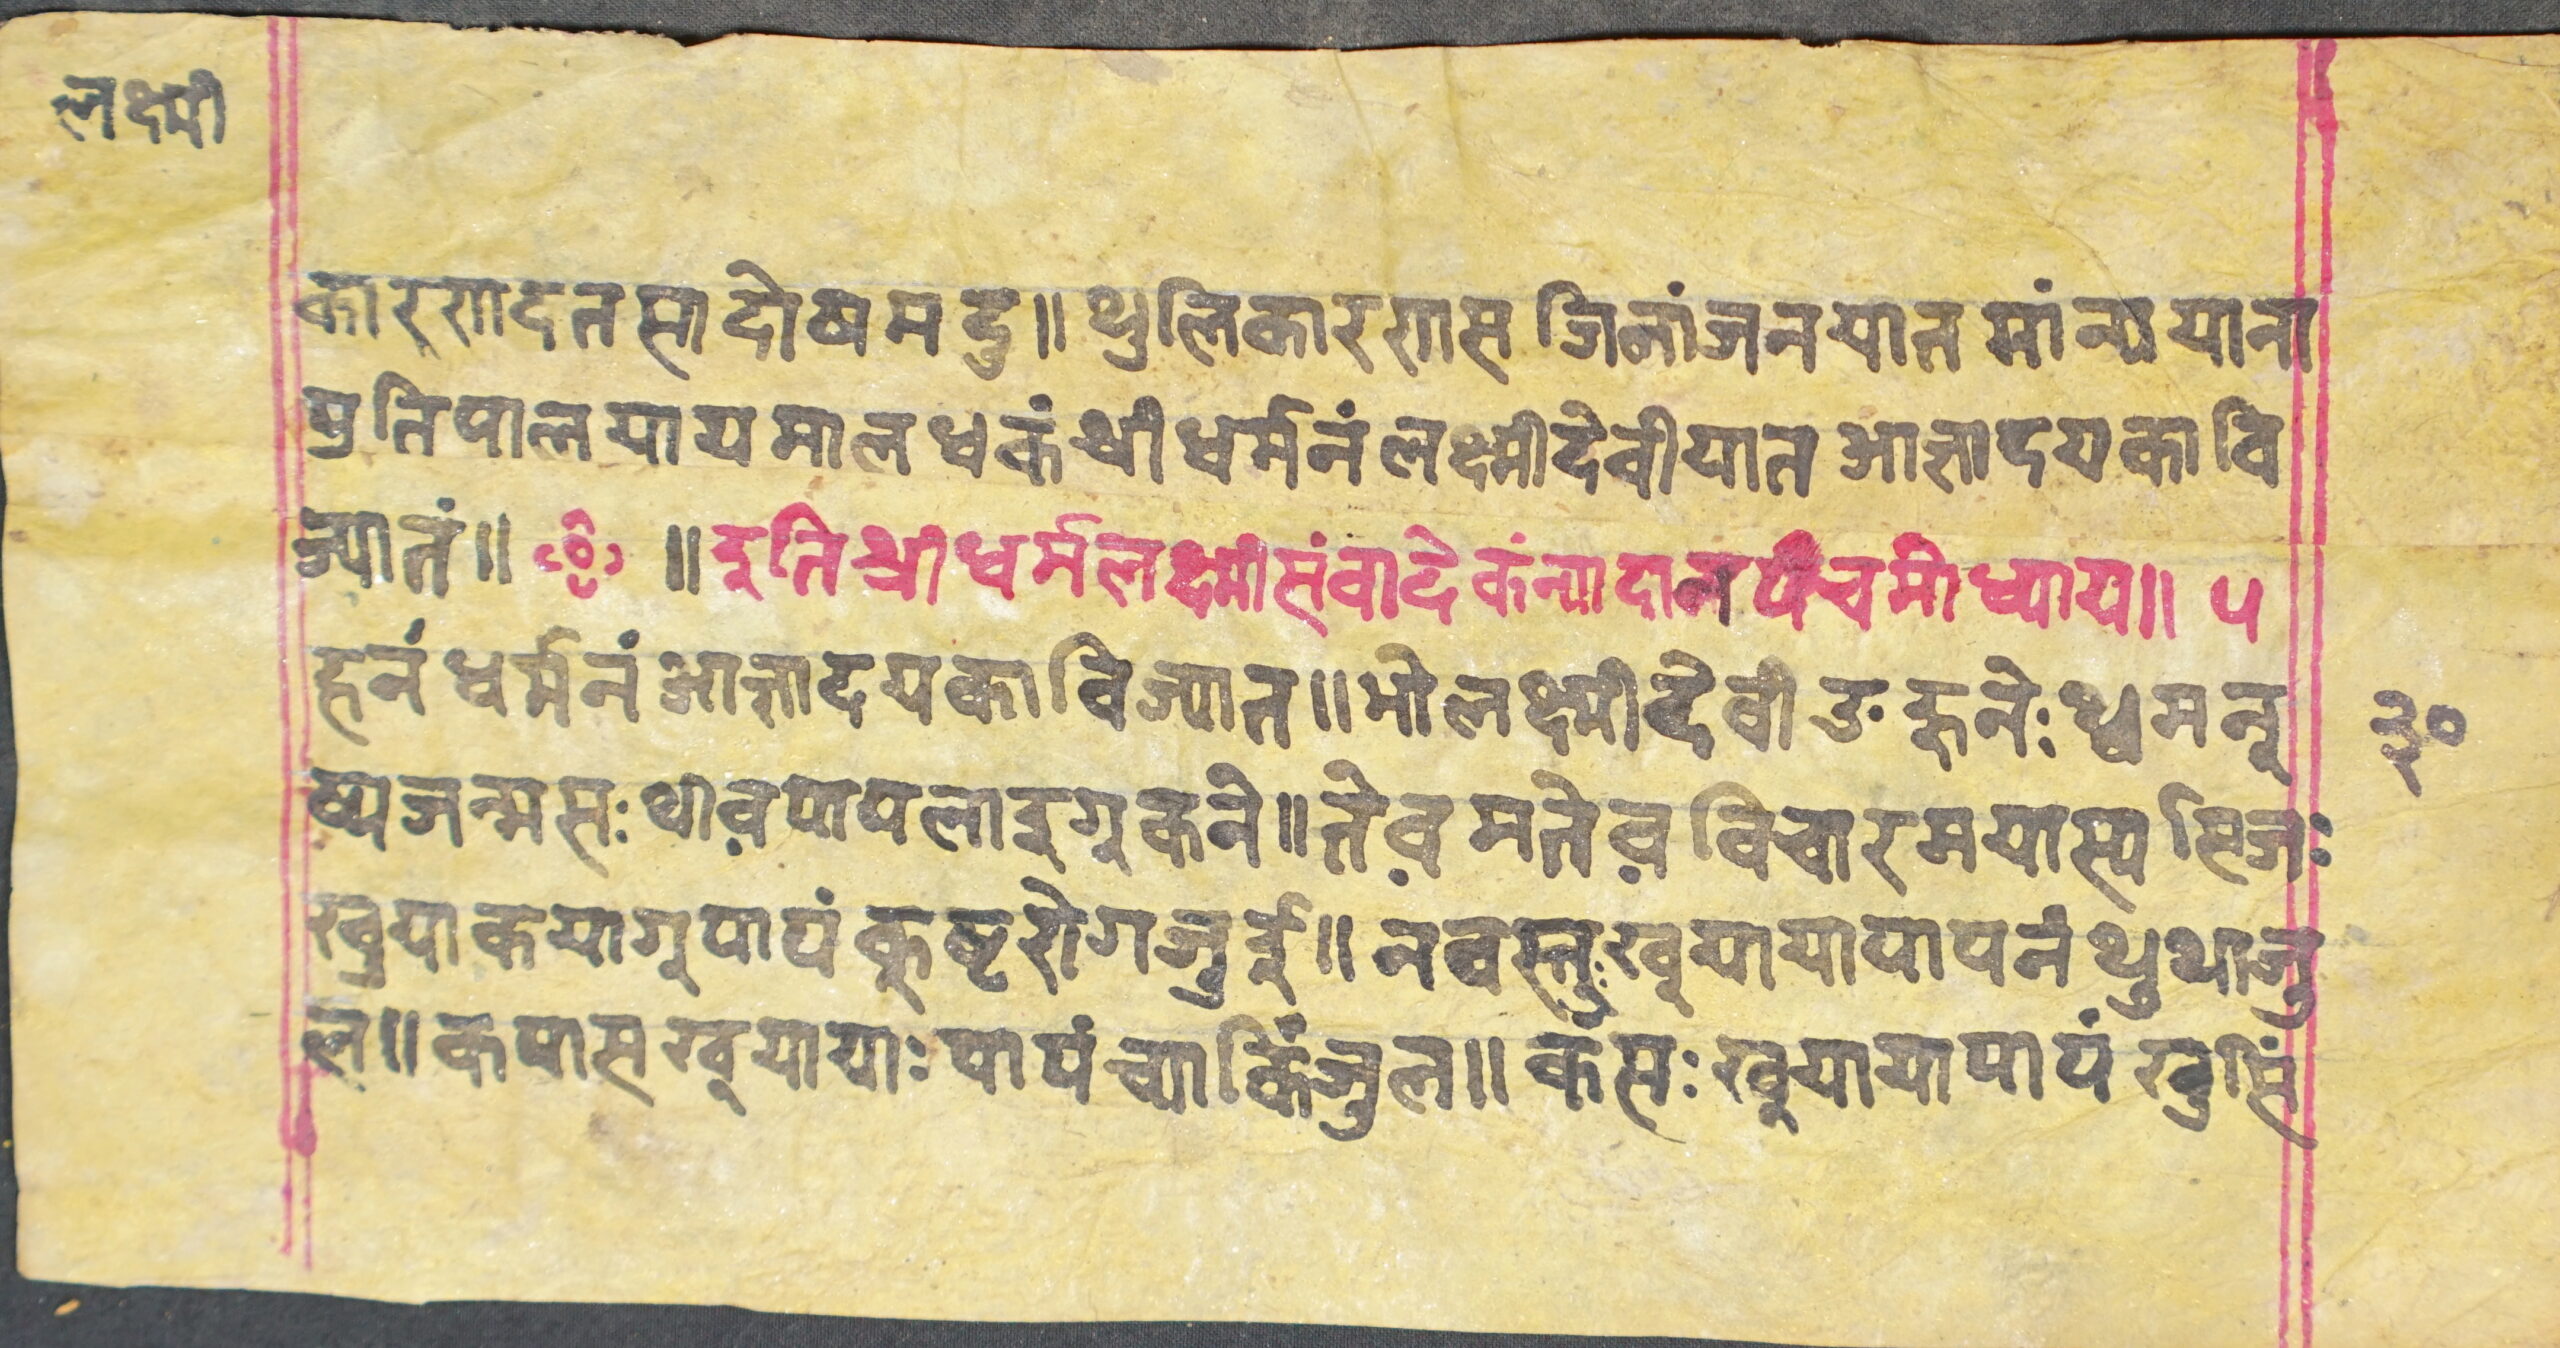 लक्ष्मी
कारणादतसा दोषमदु॥ थुलिकारणस जिलांजनयात मांन्ययाना
प्रतिपालयायमाल धकं श्री धर्मनं लक्ष्मीदेवीयात आज्ञादयका वि
ज्यातं॥ ॥ इति श्री धर्मलक्ष्मीसंवादे कंन्यादान पंचमोध्याय॥ ५
ह्रनं धर्मनं आज्ञादयका विज्यात॥ भो लक्ष्मीदेवी ङह्रनेः थ्वमनू
ष्यजन्मसः थीव पापलाइगू कने॥ तेव मतेव विचारमयास्य सिजः
खुयाकयागू पापं कूष्टरोगजुई॥ नवस्तुः खूयायापापनं थुथाजु
ल॥ कपास खूयायाः पापं च्याकिंजुल॥ कंसः खूयायापापं खुसिं
३०